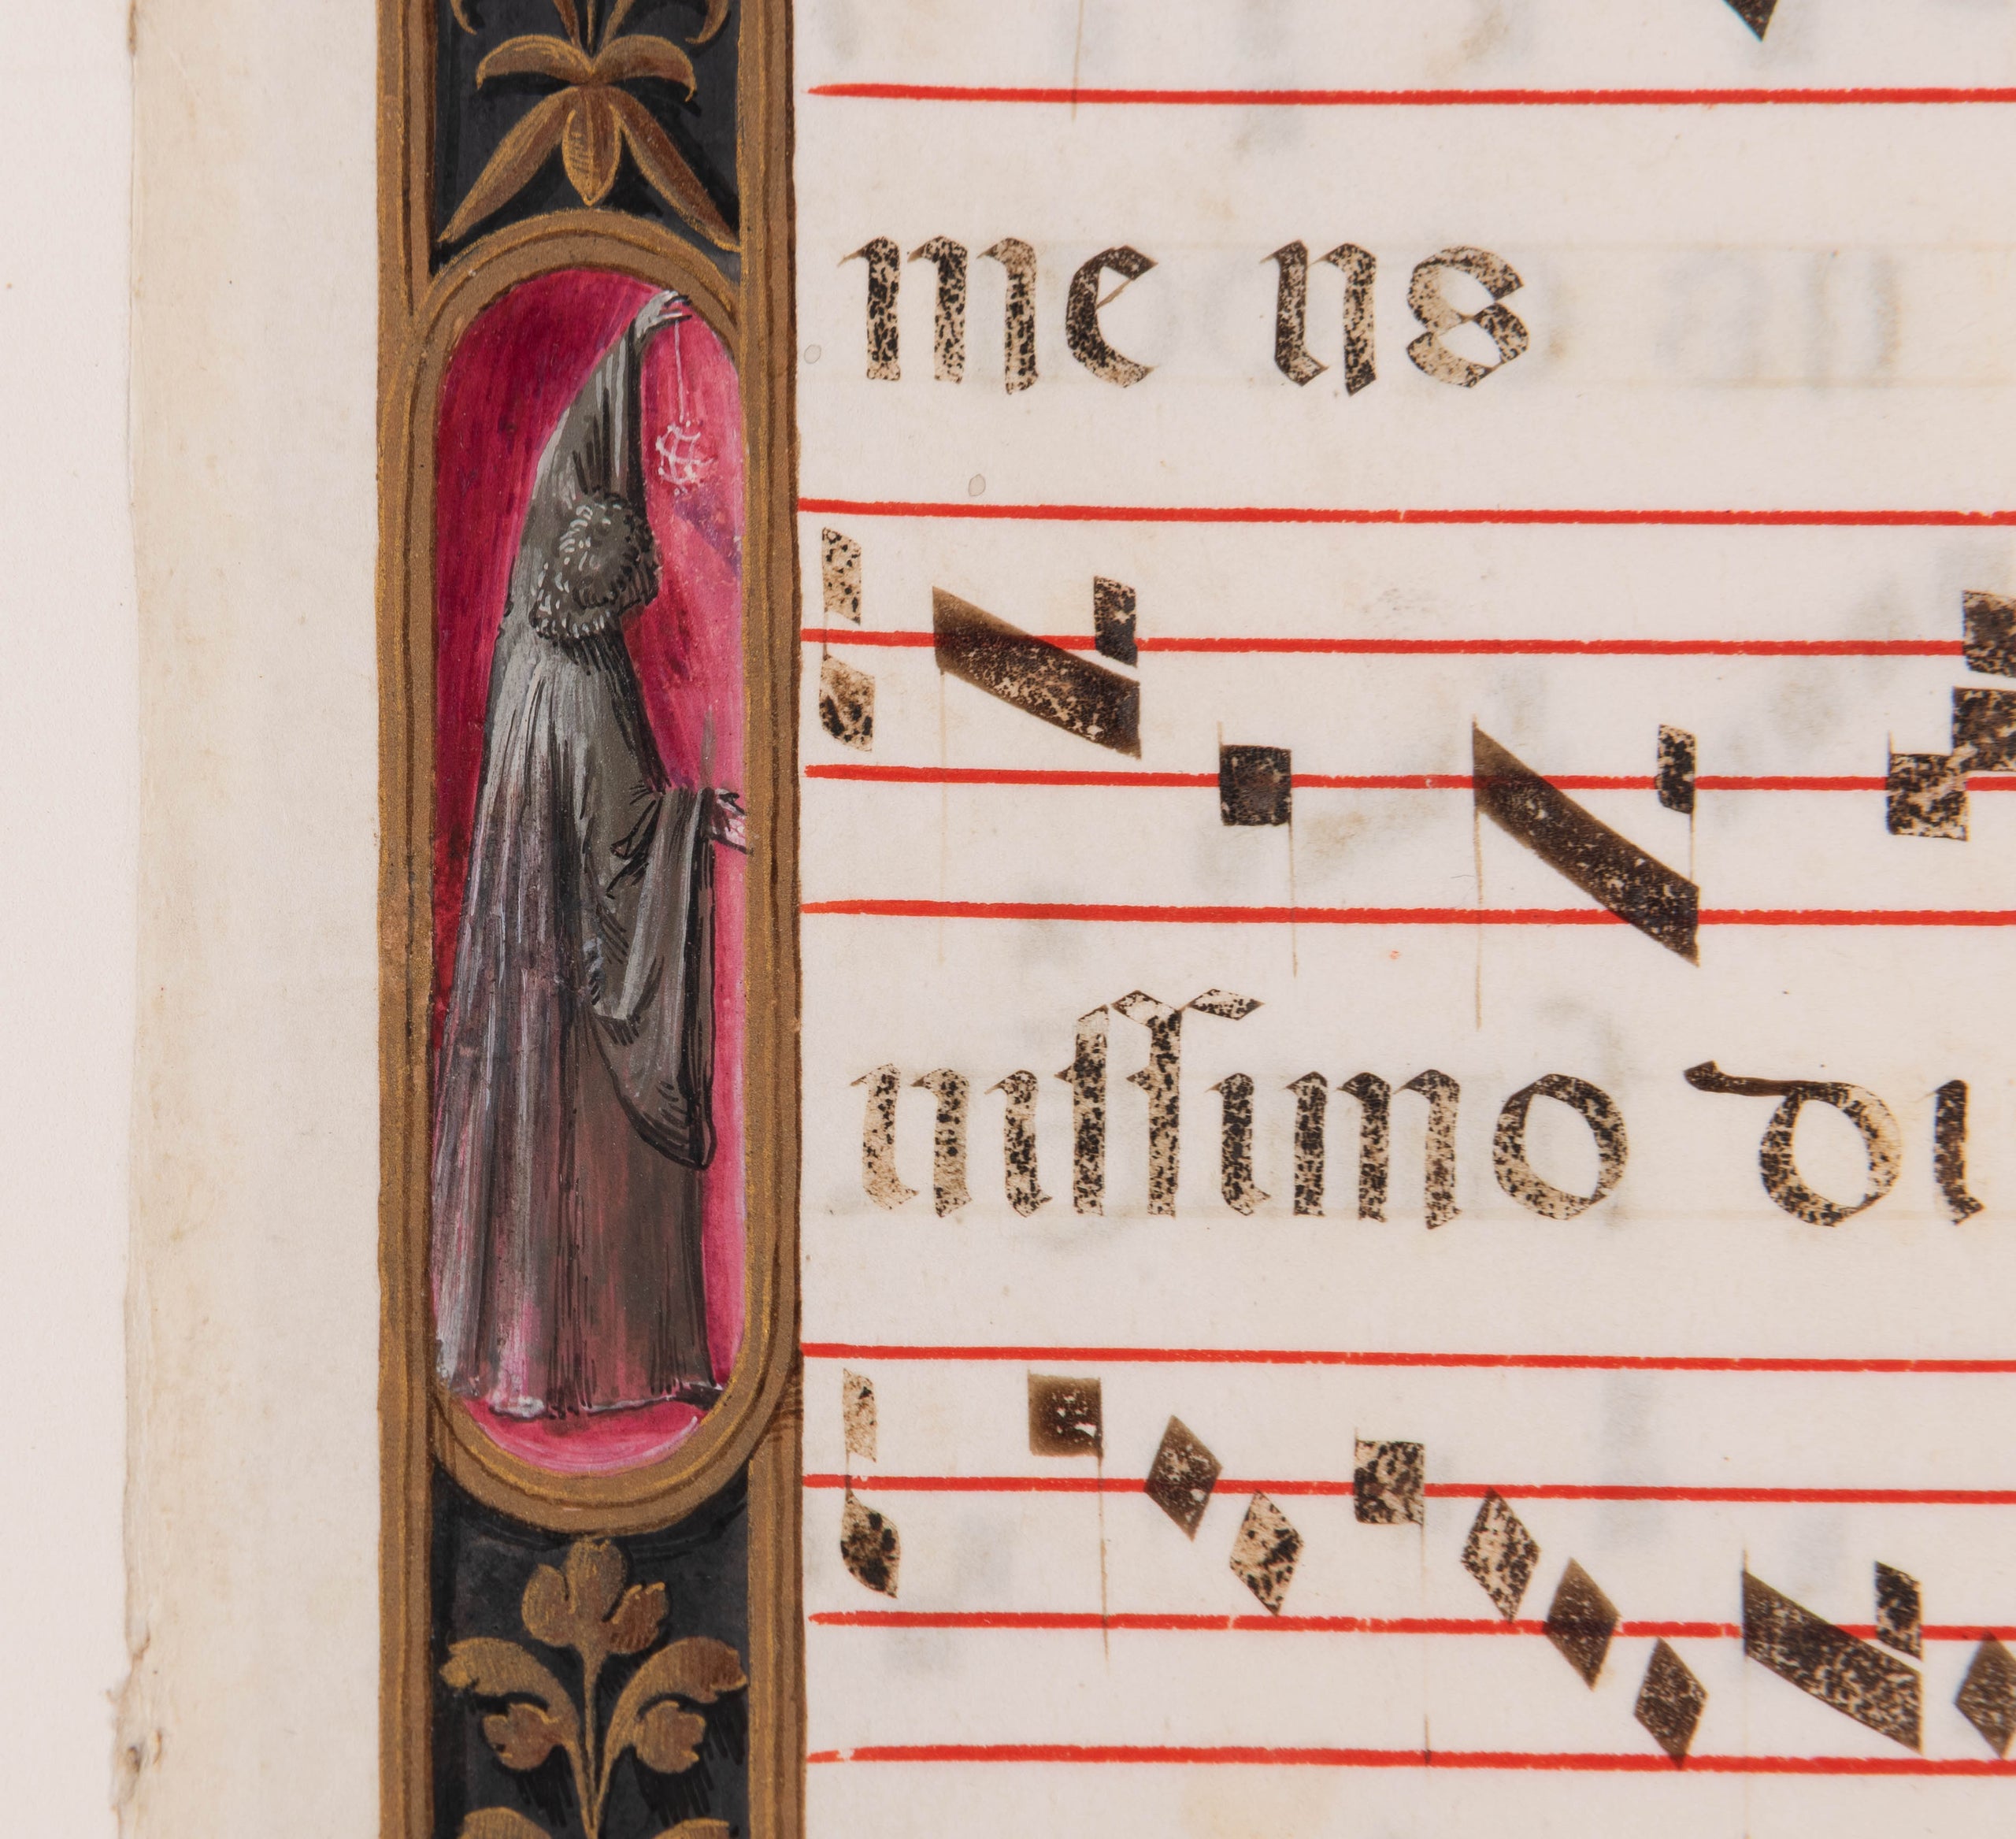 me us
nissimo di